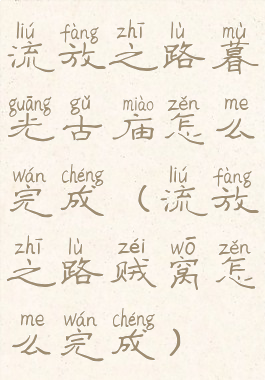 liú fàng zhī lù mù
流放之路暮
guāng gǔ miào zěn me
光古庙怎么
wán chéng liú fàng
完成（流放
zhī lù zéi wō zěn
之路贼窝怎
me wán chéng
么完成）